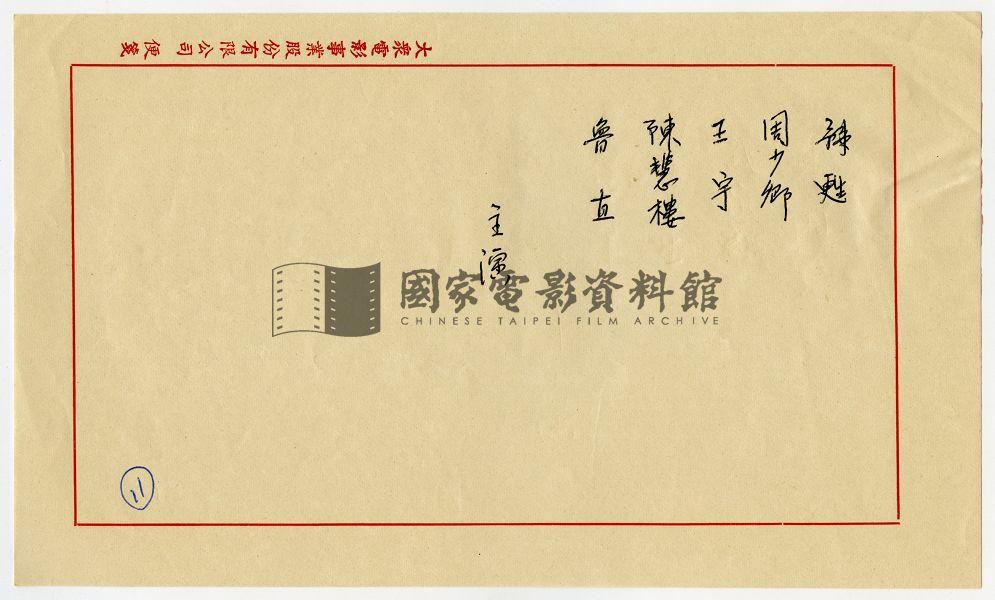 大眾電影事業股份有限公司 便箋
韓甦
周少卿
王宇
陳慧樓
魯直
主演
國家電影資料館
CHINESE TAIPEI FILM ARCHIVE